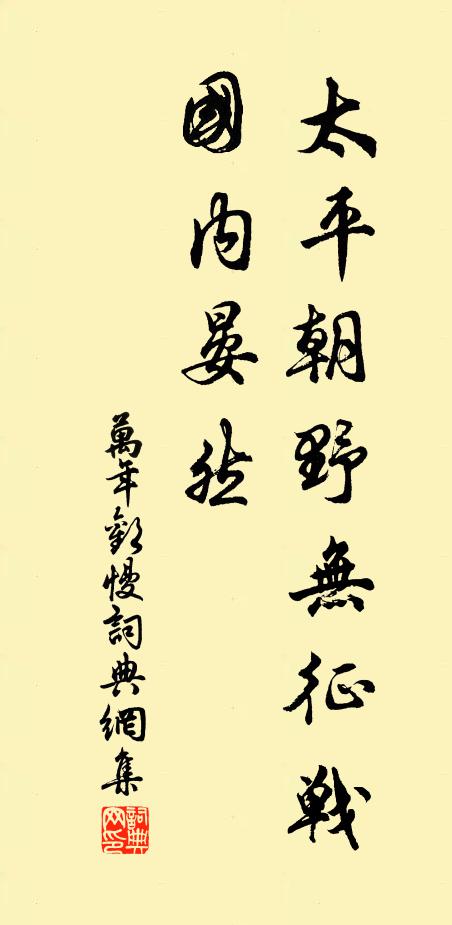 太平朝野無征戰
國内晏然
萬年歡慢詞典網集
詞典网印